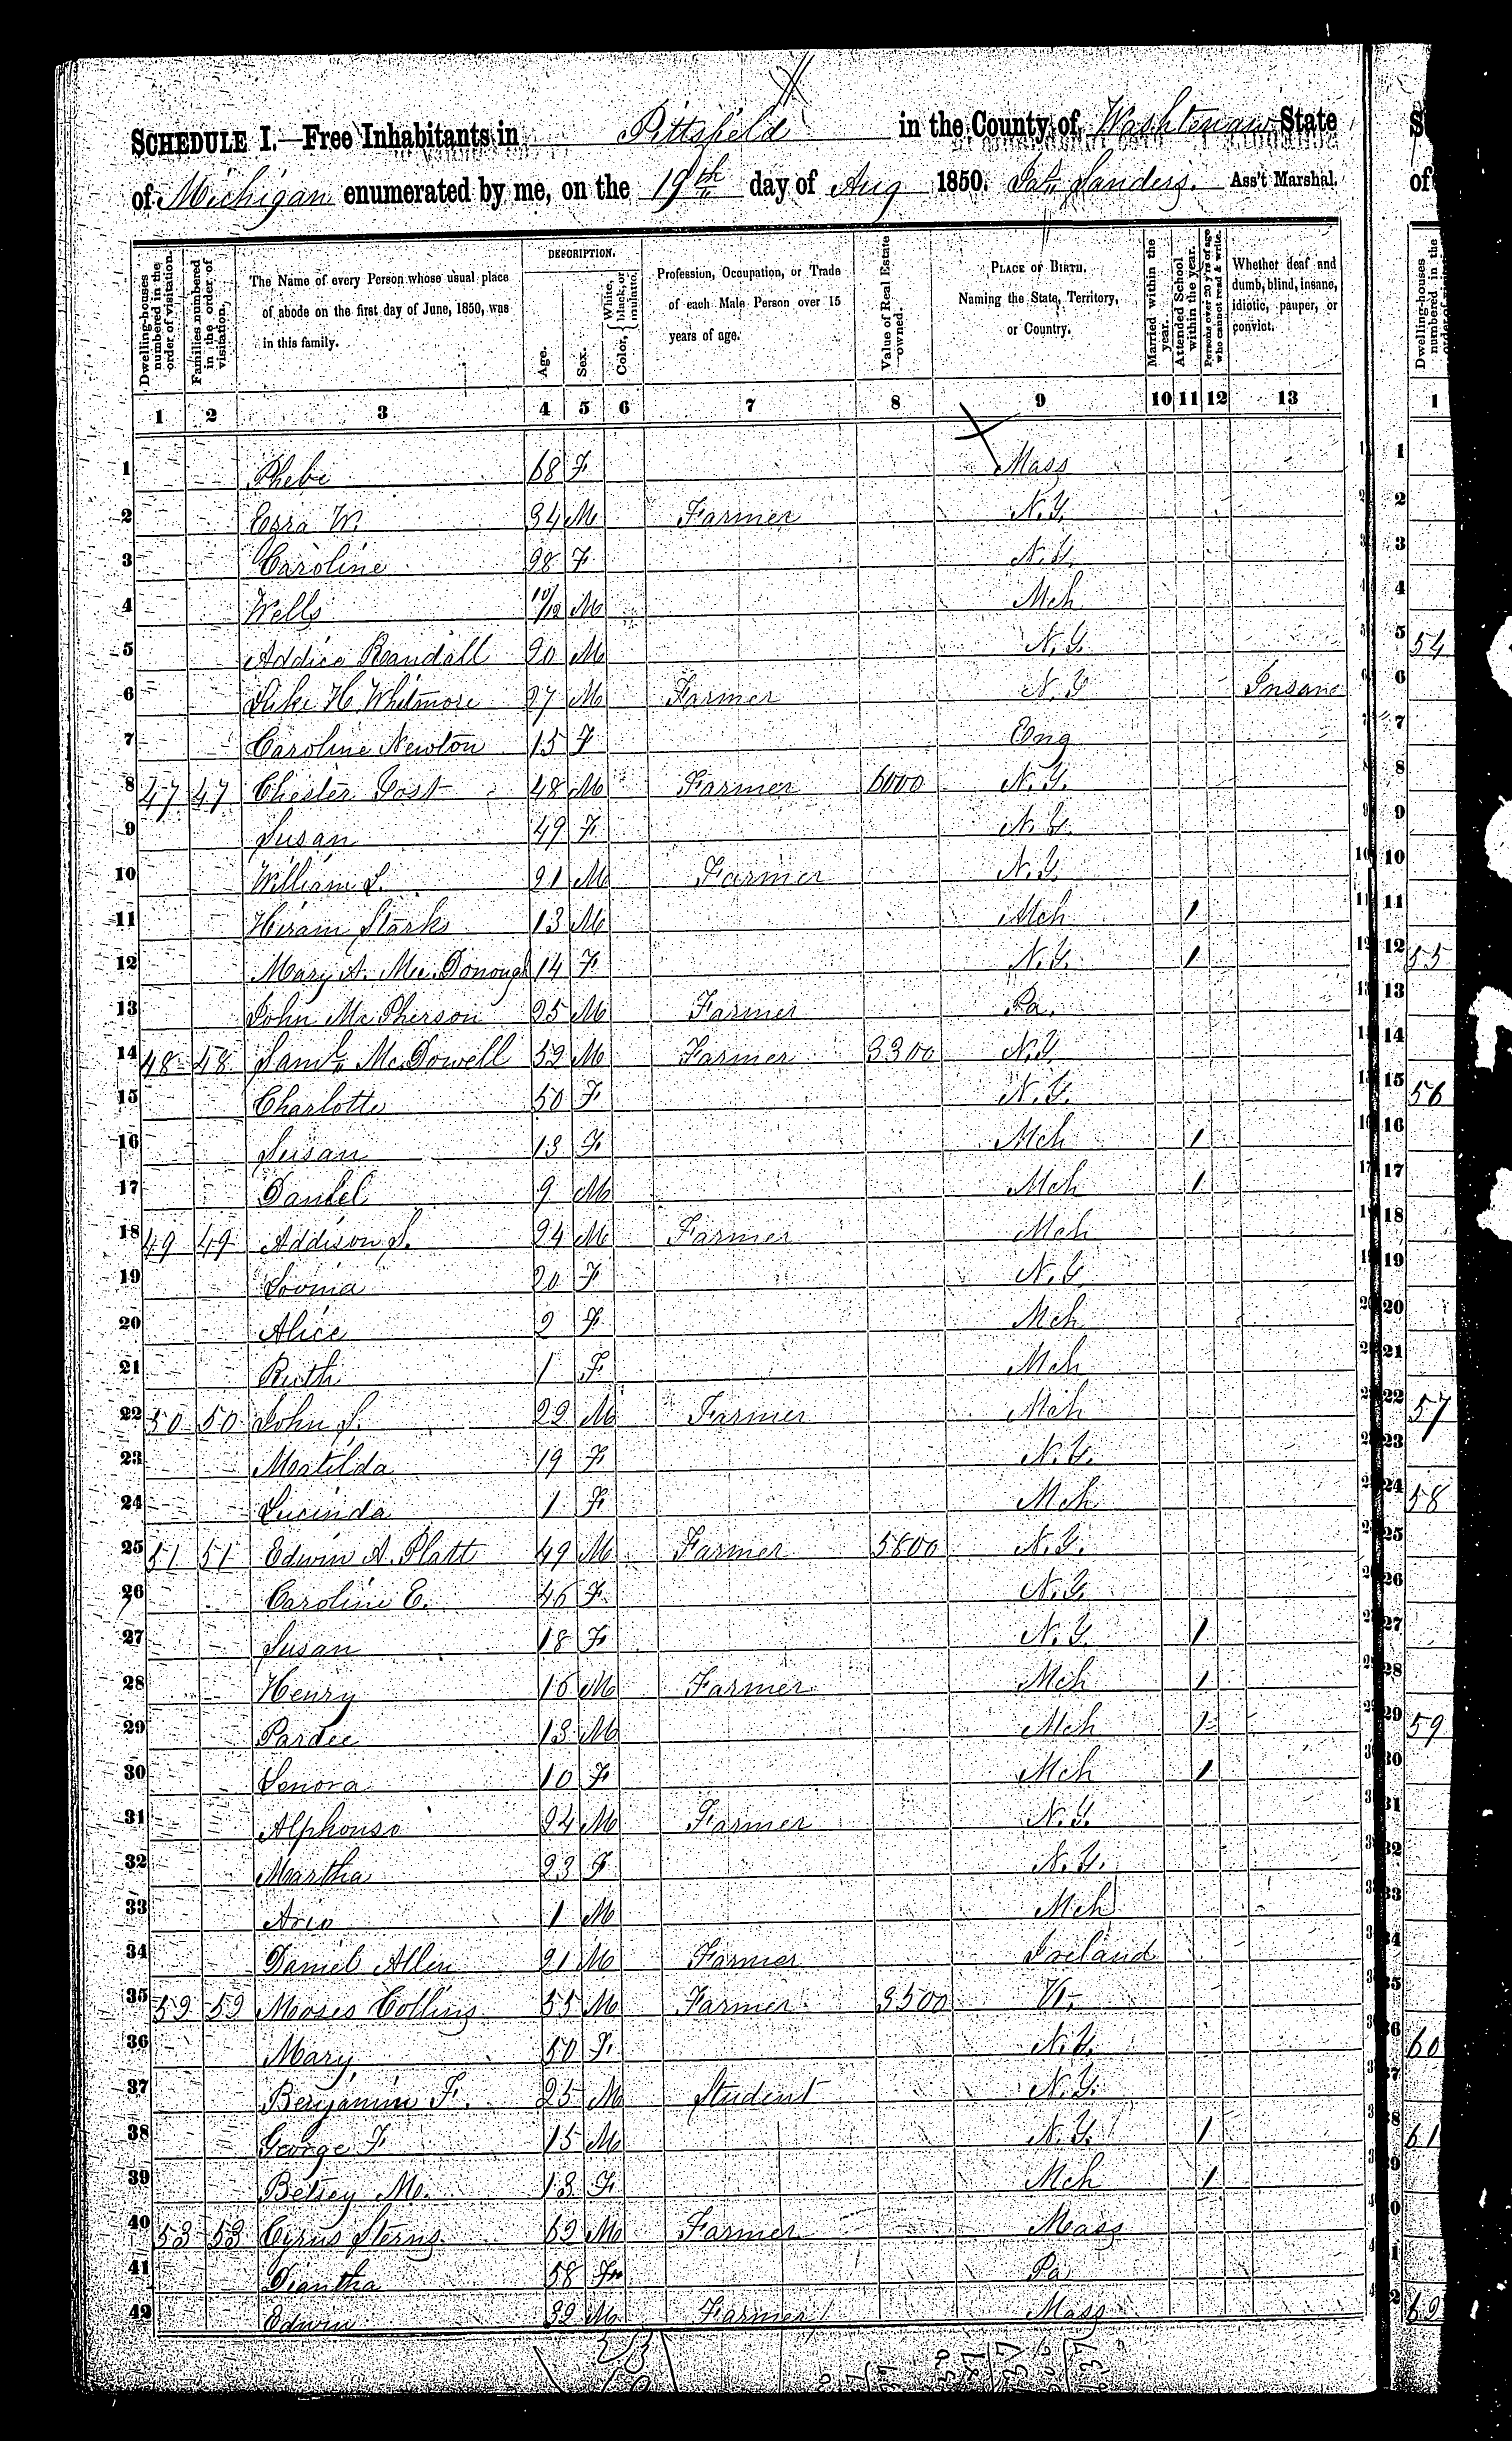 SCHEDULE I.—Free Inhabitants in Pittsfield in the County of Washtenaw State
of Michigan enumerated by me, on the 19th day of Aug 1850. Sanders. Ass't Marshal.
Dwelling-houses numbered in the order of visitation.
Families numbered in the order of visitation.
The Name of every Person whose usual place of abode on the first day of June, 1850, was in this family.
DESCRIPTION.
Age.
Sex.
Color, { White, black, or mulatto.
Profession, Occupation, or Trade of each Male Person over 15 years of age.
Value of Real Estate owned.
PLACE OF BIRTH. Naming the State, Territory, or Country.
Married within the year.
Attended School within the year.
Persons over 20 y'rs of age who cannot read & write.
Whether deaf and dumb, blind, insane, idiotic, pauper, or convict.
1 2 3 4 5 6 7 8 9 10 11 12 13
1 Phebe 68 F Mass
2 Ezra W. 34 M Farmer N.Y.
3 Caroline 28 F N.Y.
4 Wells 10/12 M Mch
5 Addice Randall 20 M N.Y.
6 Luke H. Whitmore 27 M Farmer N.Y Insane
7 Caroline Newton 15 F Eng
8 47 47 Chester Post 48 M Farmer 6000 N.Y.
9 Susan 49 F N.Y.
10 William L. 21 M Farmer N.Y.
11 Hiram Starks 13 M Mch 1
12 Mary A. Mc.Donough 14 F N.Y. 1
13 John McPherson 25 M Farmer Pa.
14 48 48 Saml McDowell 52 M Farmer 3300 N.Y.
15 Charlotte 50 F N.Y.
16 Susan 13 F Mch 1
17 Daniel 9 M Mch 1
18 49 49 Addison S. 24 M Farmer Mch
19 Lovina 20 F N.Y.
20 Alice 2 F Mch
21 Ruth 1 F Mch
22 50 50 John S. 22 M Farmer Mch
23 Matilda 19 F N.Y.
24 Lucinda 1 F Mch
25 51 51 Edwin A. Platt 49 M Farmer 5800 N.Y.
26 Caroline E. 46 F N.Y.
27 Susan 18 F N.Y. 1
28 Henry 16 M Farmer Mch 1
29 Pardee 13 M Mch 1
30 Lenora 10 F Mch 1
31 Alphonso 24 M Farmer N.Y.
32 Martha 23 F N.Y.
33 Ario 1 M Mch
34 Daniel Allen 21 M Farmer Ireland
35 52 52 Moses Collins 55 M Farmer 3500 Vt.
36 Mary 50 F N.Y.
37 Benjamin F. 25 M Student N.Y.
38 George F 15 M N.Y. 1
39 Betsey M. 13 F Mch 1
40 53 53 Cyrus Sterns 62 M Farmer Mass
41 Diantha 58 F Pa
42 Edwin 32 M Farmer Mass
54
55
56
57
58
59
60
61
62